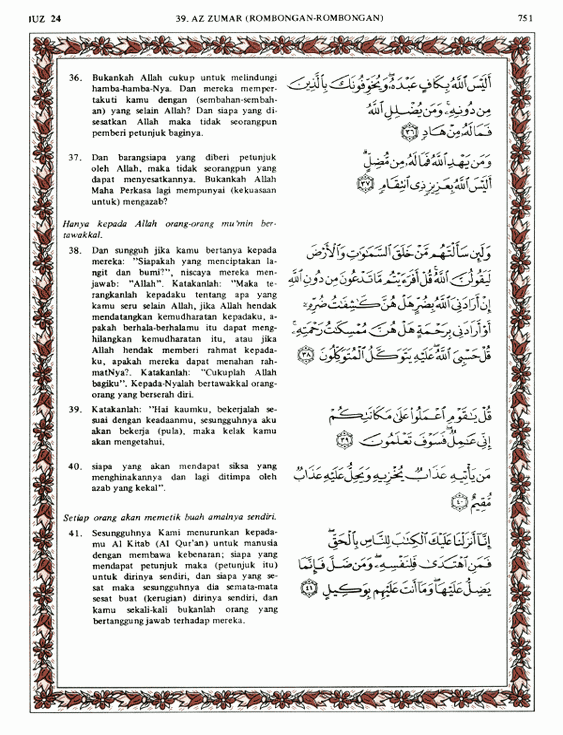 JUZ 24 39. AZ ZUMAR (ROMBONGAN-ROMBONGAN) 751
36. Bukankah Allah cukup untuk melindungi
hamba-hamba-Nya. Dan mereka memper-
takuti kamu dengan (sembahan-sembah-
an) yang selain Allah? Dan siapa yang di-
sesatkan Allah maka tidak seorangpun
pemberi petunjuk baginya.
أَلَيْسَ اللَّهُ بِكَافٍ عَبْدَهُ وَيُخَوِّفُونَكَ بِالَّذِينَ
مِن دُونِهِ وَمَن يُضْلِلِ اللَّهُ
فَمَا لَهُ مِنْ هَادٍ ٣٦
37. Dan barangsiapa yang diberi petunjuk
oleh Allah, maka tidak seorangpun yang
dapat menyesatkannya. Bukankah Allah
Maha Perkasa lagi mempunyai (kekuasaan
untuk) mengazab?
وَمَن يَهْدِ اللَّهُ فَمَا لَهُ مِن مُّضِلٍّ
أَلَيْسَ اللَّهُ بِعَزِيزٍ ذِي انتِقَامٍ ٣٧
Hanya kepada Allah orang-orang mu'min ber-
tawakkal.
38. Dan sungguh jika kamu bertanya kepada
mereka: "Siapakah yang menciptakan la-
ngit dan bumi?", niscaya mereka men-
jawab: "Allah". Katakanlah: "Maka te-
rangkanlah kepadaku tentang apa yang
kamu seru selain Allah, jika Allah hendak
mendatangkan kemudharatan kepadaku, a-
pakah berhala-berhalamu itu dapat meng-
hilangkan kemudharatan itu, atau jika
Allah hendak memberi rahmat kepada-
ku, apakah mereka dapat menahan rah-
matNya?. Katakanlah: "Cukuplah Allah
bagiku". Kepada-Nyalah bertawakkal orang-
orang yang berserah diri.
وَلَئِن سَأَلْتَهُم مَّنْ خَلَقَ السَّمَٰوَٰتِ وَالْأَرْضَ
لَيَقُولُنَّ اللَّهُ قُلْ أَفَرَءَيْتُم مَّا تَدْعُونَ مِن دُونِ اللَّهِ
إِنْ أَرَادَنِيَ اللَّهُ بِضُرٍّ هَلْ هُنَّ كَٰشِفَٰتُ ضُرِّهِ
أَوْ أَرَادَنِي بِرَحْمَةٍ هَلْ هُنَّ مُمْسِكَٰتُ رَحْمَتِهِ
قُلْ حَسْبِيَ اللَّهُ عَلَيْهِ يَتَوَكَّلُ الْمُتَوَكِّلُونَ ٣٨
39. Katakanlah: "Hai kaumku, bekerjalah se-
suai dengan keadaanmu, sesungguhnya aku
akan bekerja (pula), maka kelak kamu
akan mengetahui,
قُلْ يَٰقَوْمِ اعْمَلُوا عَلَىٰ مَكَانَتِكُمْ
إِنِّي عَٰمِلٌ فَسَوْفَ تَعْلَمُونَ ٣٩
40. siapa yang akan mendapat siksa yang
menghinakannya dan lagi ditimpa oleh
azab yang kekal".
مَن يَأْتِيهِ عَذَابٌ يُخْزِيهِ وَيَحِلُّ عَلَيْهِ عَذَابٌ
مُّقِيمٌ ٤٠
Setiap orang akan memetik buah amalnya sendiri.
41. Sesungguhnya Kami menurunkan kepada-
mu Al Kitab (Al Qur'an) untuk manusia
dengan membawa kebenaran; siapa yang
mendapat petunjuk maka (petunjuk itu)
untuk dirinya sendiri, dan siapa yang se-
sat maka sesungguhnya dia semata-mata
sesat buat (kerugian) dirinya sendiri, dan
kamu sekali-kali bukanlah orang yang
bertanggung jawab terhadap mereka.
إِنَّا أَنزَلْنَا عَلَيْكَ الْكِتَٰبَ لِلنَّاسِ بِالْحَقِّ
فَمَنِ اهْتَدَىٰ فَلِنَفْسِهِ وَمَن ضَلَّ فَإِنَّمَا
يَضِلُّ عَلَيْهَا وَمَا أَنتَ عَلَيْهِم بِوَكِيلٍ ٤١